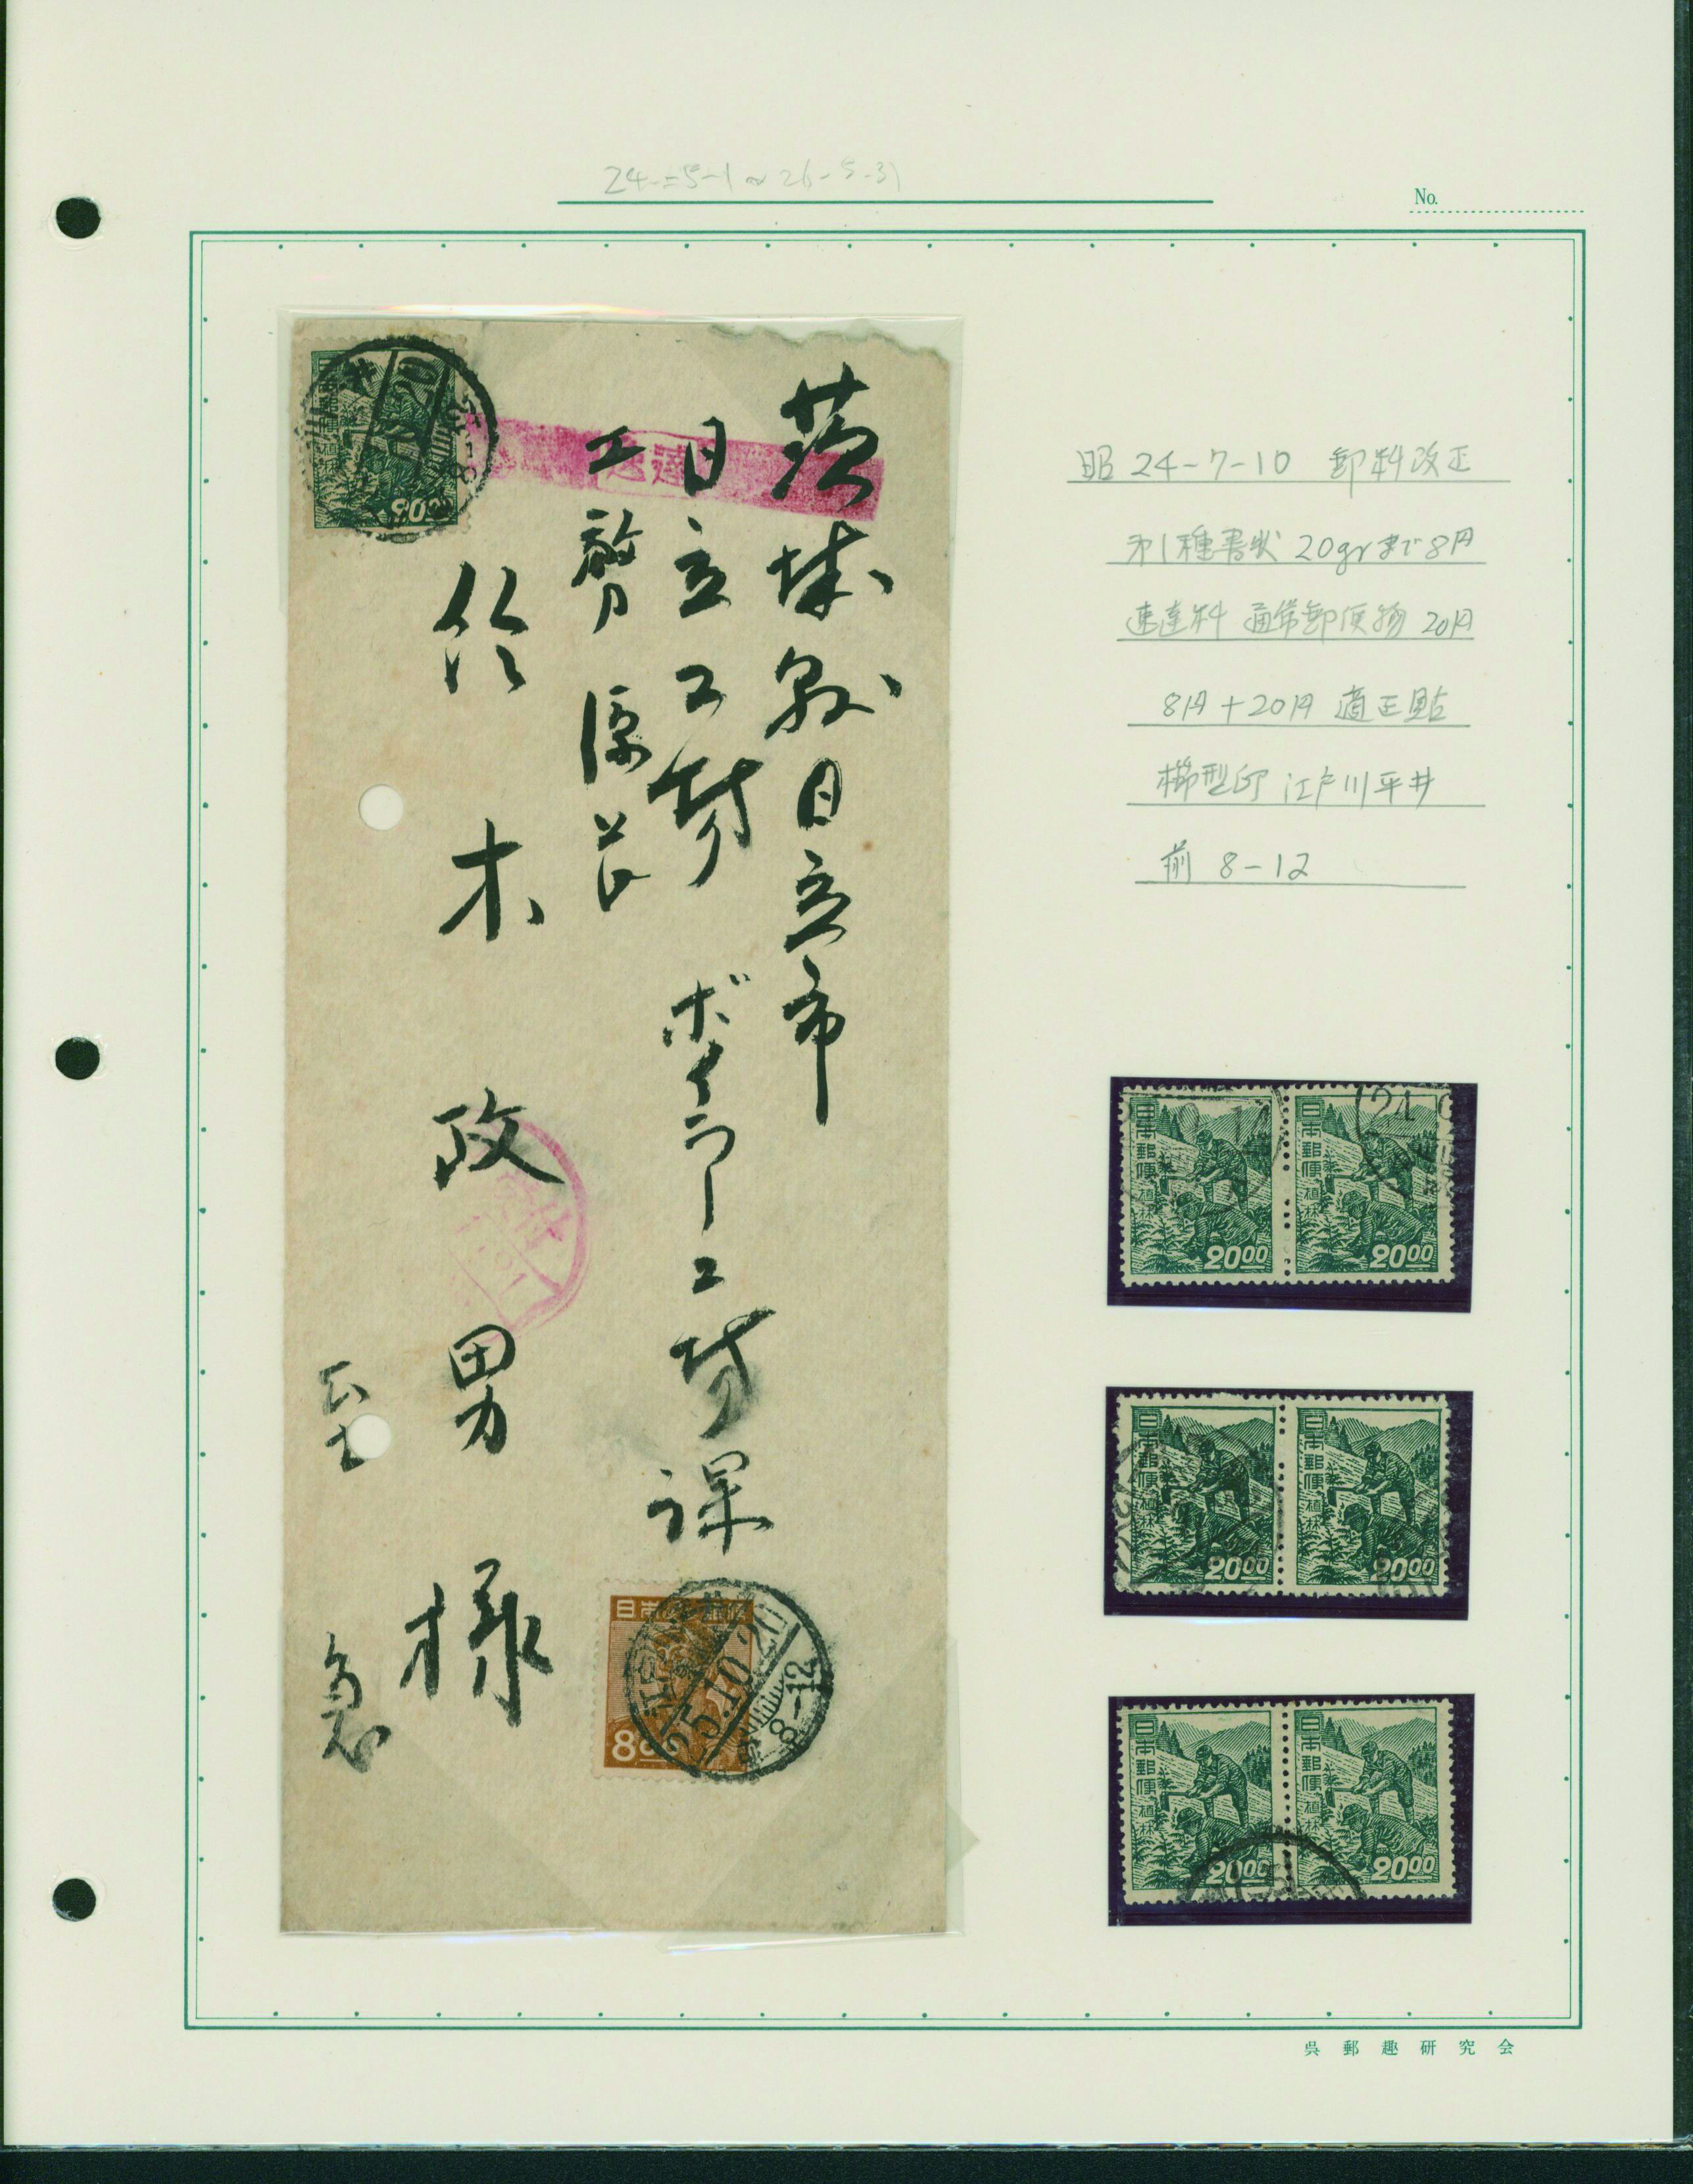 24-5-1~26-5-31
No.
速達
茨城県日立市
日立工場 ボイラー工場課
工務係長
鈴木政男様
至急
日本郵便
8.00
25.10.20
前8-12
日本郵便
植林
20.00
昭24-7-10 郵料改正
オ1種書状 20grまで8円
速達料 通常郵便物 20円
8円+20円 適正貼
櫛型印 江戸川平井
前 8-12
日本郵便
植林
20.00
日本郵便
植林
20.00
24
日本郵便
植林
20.00
日本郵便
植林
20.00
日本郵便
植林
20.00
日本郵便
植林
20.00
呉郵趣研究会